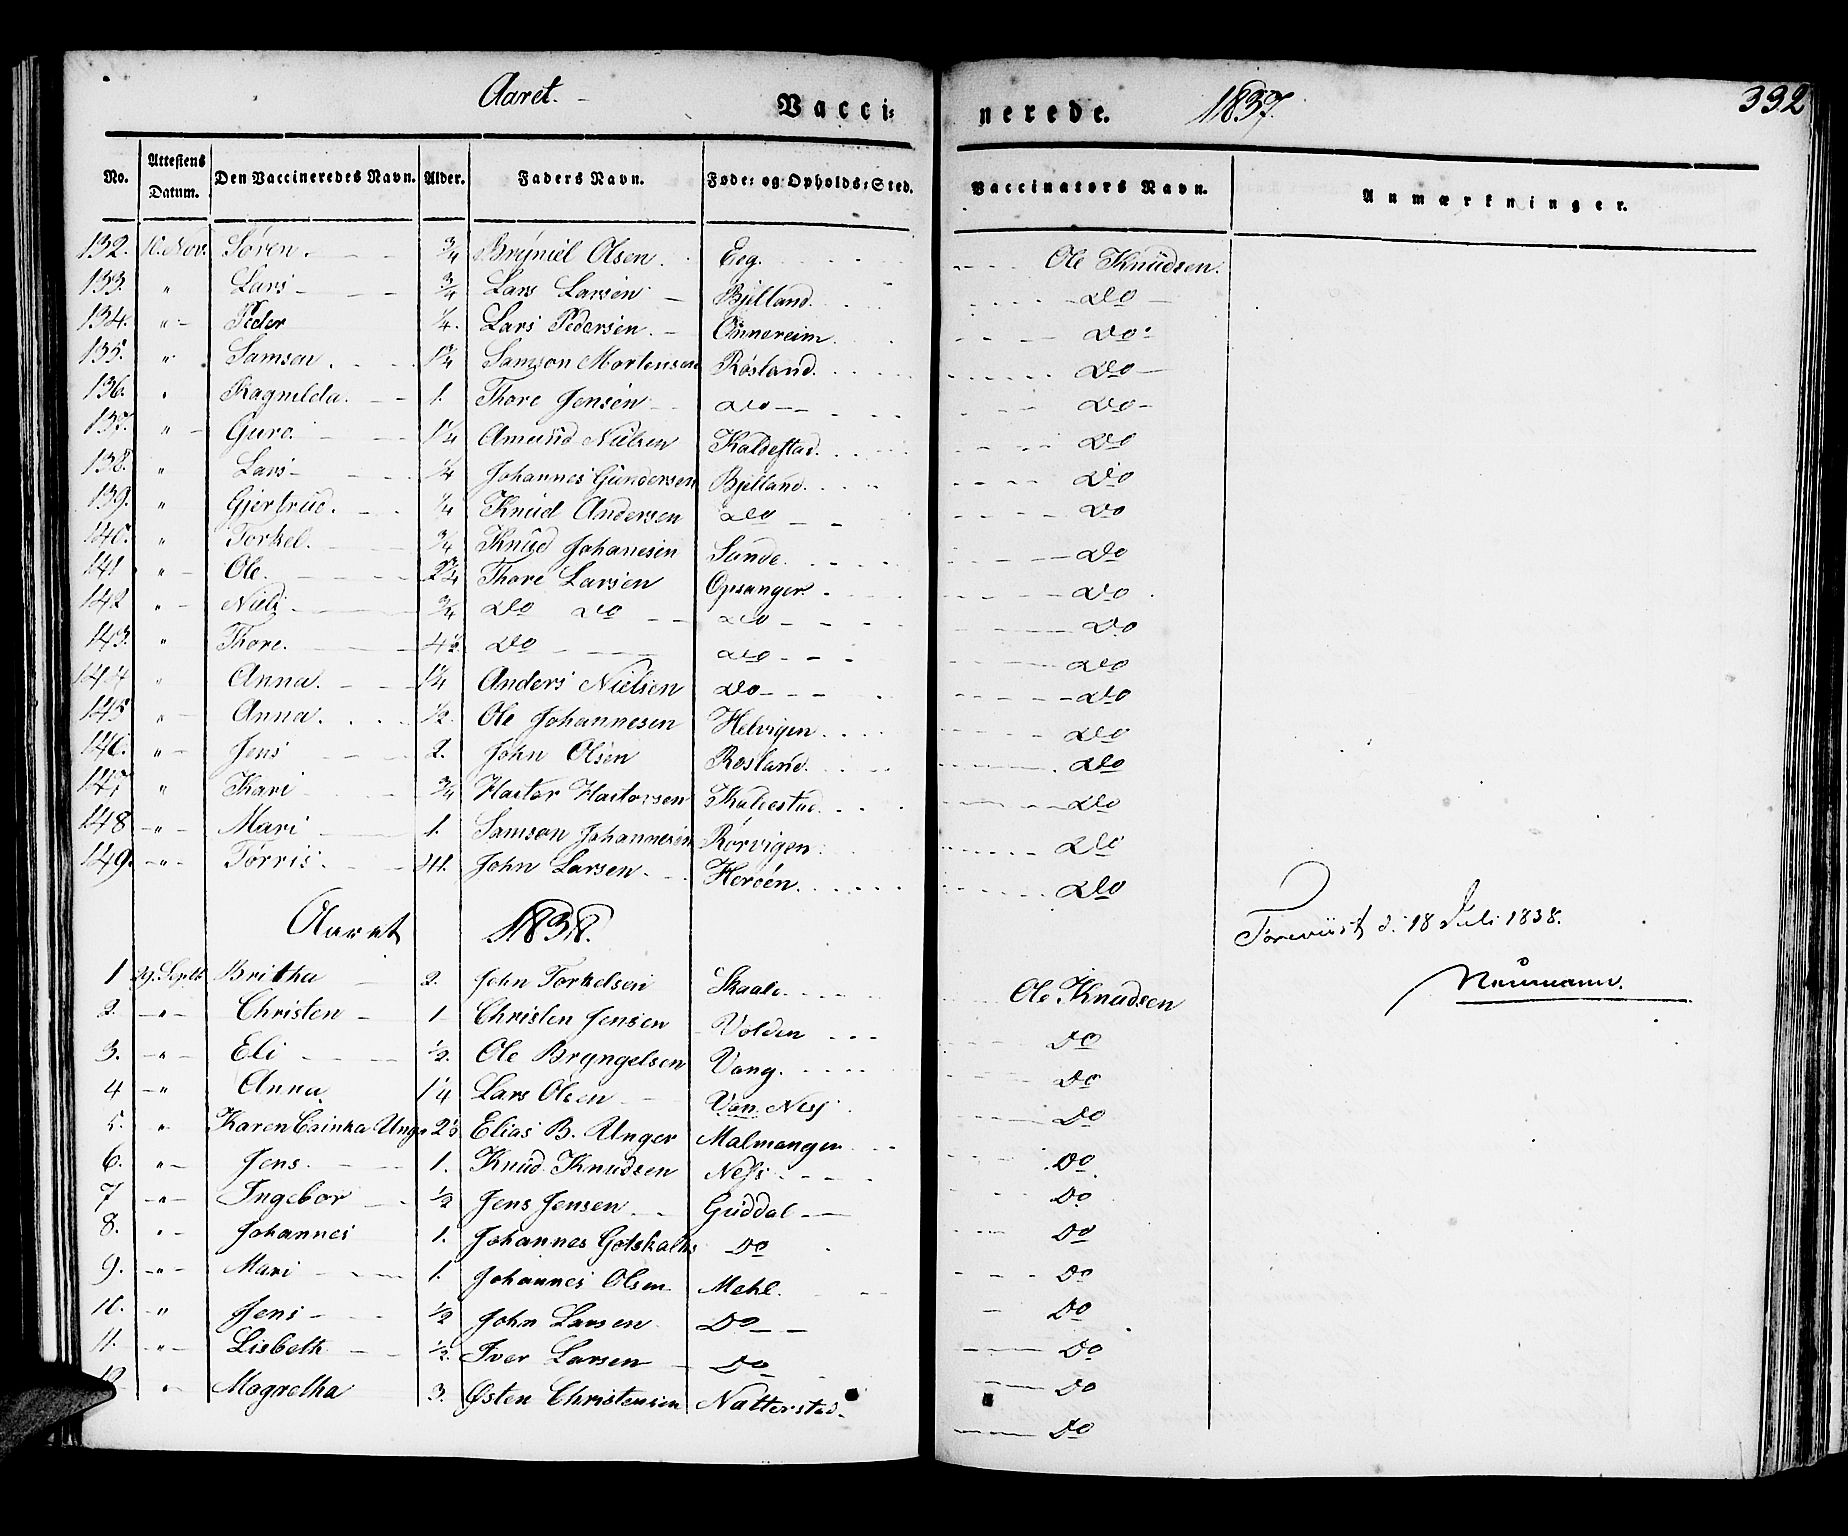 Aaret. Vaccinerede. 1837. 332
No. Attestens Datum. Den Vaccineredes Navn. Alder. Faders Navn. Føde- og Opholds-Sted. Vaccinators Navn. Anmærkninger.
132. Nov. Søren 3/4 Olsen Eeg. Ole Knudsen.
133. " Lars 3/4 Lars Larsen Bjelland. Do
134. " Peder 1/4. Lars Pedersen Onnereim Do
135. " Samson Samson Mortensen Røsland. Do
136. " Ragnilda. 1. Thore Jensen Do Do
137. " Guro. 1 1/4 Amund Nielsen Kaldestad. Do
138. " Lars 1/4 Johannes Gundersen Bjelland. Do
139. " Gjertrud. 1/4 Knud Andersen Do Do
140. " Torkel. 3/4 Knud Johanesen Sunde. Do
141. " Ole. 2 3/4 Thore Larsen Opsanger Do
142 " Niels 3/4 Do Do Do Do
143. " Thore. Do Do Do
144 " Anna. 1 1/4 Anders Nielsen Do Do
145 " Anna. 1/2. Ole Johannesen Helvigen Do
146. " Jens 2. John Olsen Røsland. Do
147 " Kari 3/4 Hactor Hactorsen Kaldestad Do
148 " Mari 1. Samson Johannesen Rørvigen Do
149. " Tørris John Larsen Herøen. Do
Aaret 1838.
Foreviist d. 18 Juli 1838.
Neumann.
1 29. Septb Britha 2. John Torkelsen Skaale. Ole Knudsen
2. " Christen 1 Christen Jensen Volden Do
3. " Eli 1/2. Ole Bryngelsen Vang. Do
4 " Anna 1 1/4 Lars Olsen Næss Do
5. " Karen Unger Elias B. Unger Malmanger Do
6. " Jens. 1. Knud Knudsen Næss Do
7 " Ingebor 1/2 Jens Jensen Guddal Do
8. " Johannes 1. Johannes Gotskalks Do Do
9. " Mari 1. Johannes Olsen Mehl. Do
10. " Jens 1/2 John Larsen Do Do
11. " Lisbeth 1/2. Iver Larsen Do Do
12 " Magretha 3. Østen Christensen Natterstad Do